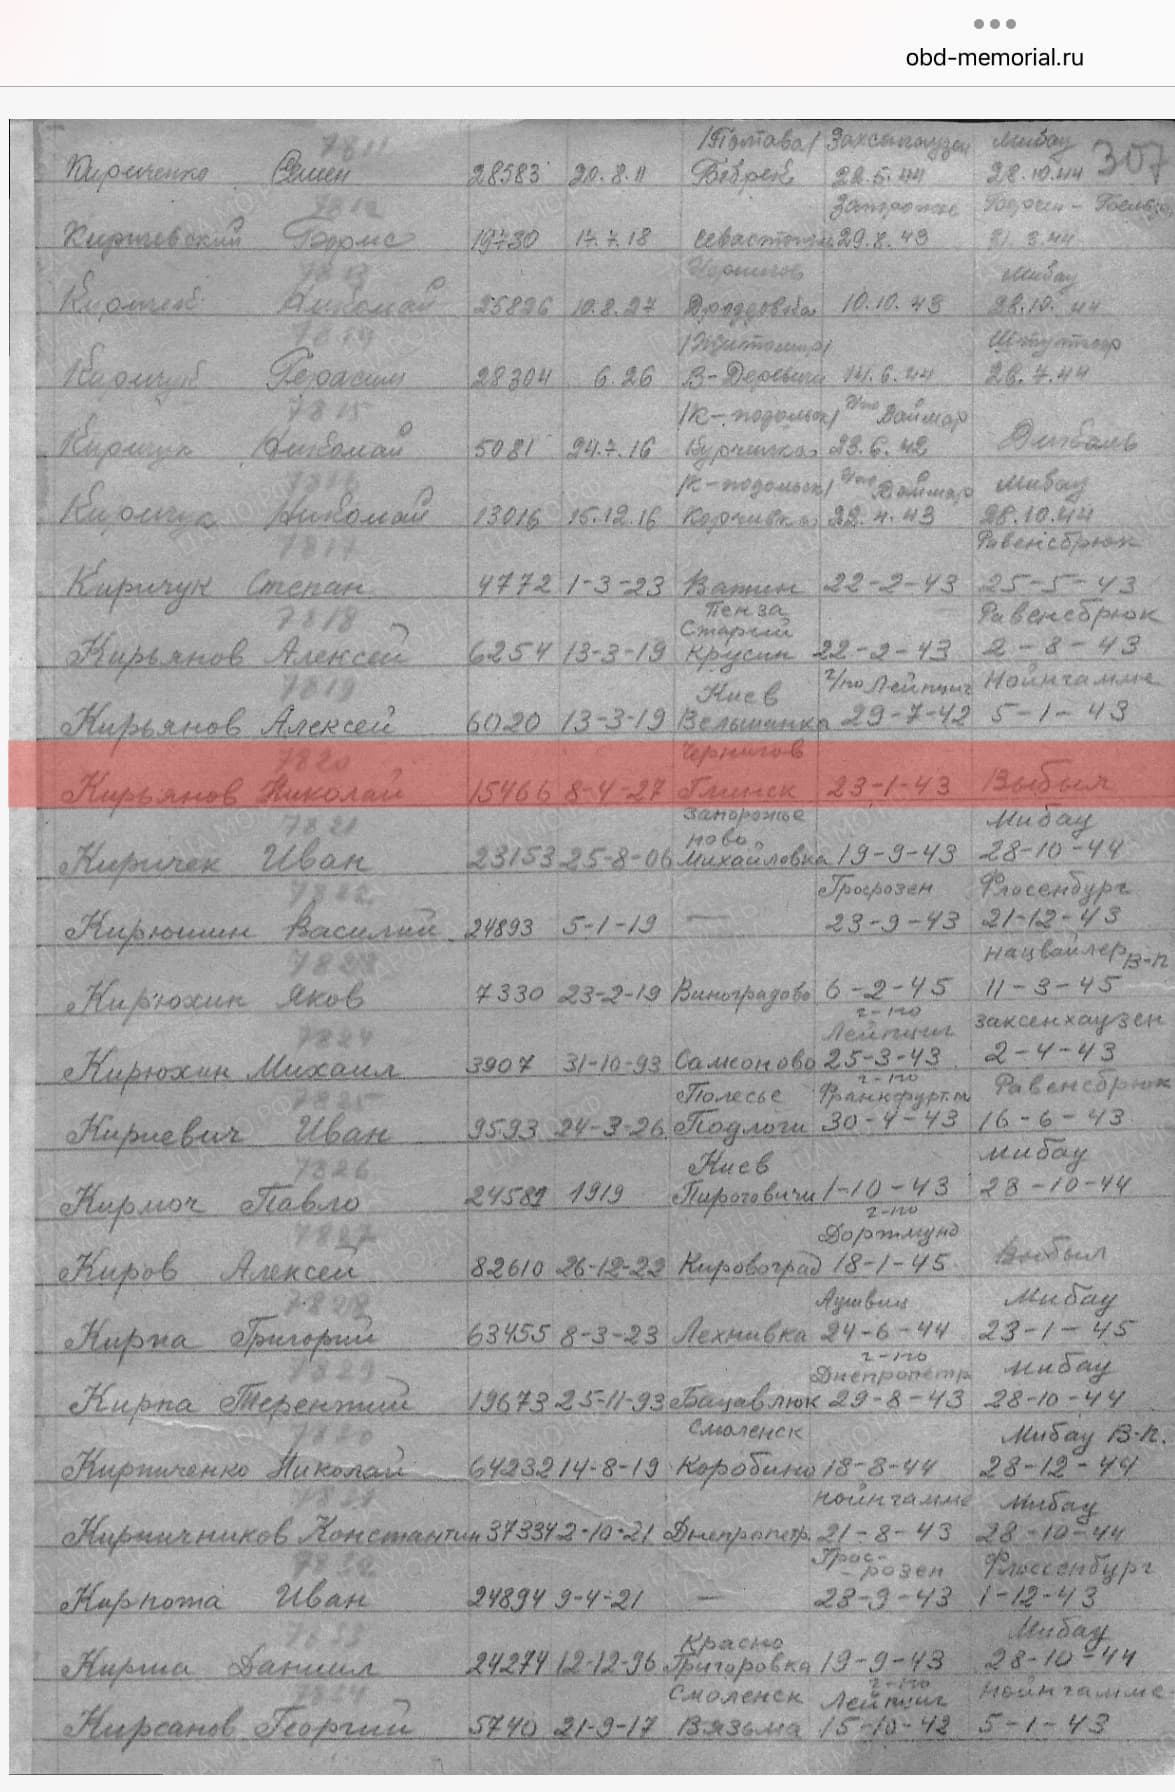 obd-memorial.ru
307
/Полтава/ Заксенгаузен Мибау
Кириченко Семен 28583 20.8.11 22.5.44 28.10.44
7812 Запорожье
Киричевский 19730 17.7.18 Севастополь 29.8.43 31.3.44
7813 Чернигов Мибау
Киричек Николай 25826 10.8.27 Дроздовка 10.10.43 28.10.44
7814 /Житомир/ Штутгоф
Киричук Герасим 28304 6.26 В-Деревичи 14.6.44 26.7.44
7815 /К-подольск/ г/по Ваймар
Киричук Николай 5081 24.7.16 23.6.42
7816 /К-подольск/ г/по Ваймар Мибау
Киричук Николай 13016 15.12.16 Корчивка 22.4.43 28.10.44
7817 Равенсбрюк
Киричук Степан 4772 1-3-23 Ватин 22-2-43 25-5-43
7818 Пенза Равенсбрюк
Старый
Кирьянов Алексей 6254 13-3-19 Крусин 22-2-43 2-8-43
7819 Киев г/по Лейпциг Нойнгамме
Кирьянов Алексей 6020 13-3-19 Вельшанка 29-7-42 5-1-43
7820 Чернигов
Кирьянов Николай 15466 8-4-27 Глинск 23-1-43 Выбыл
7821 Запорожье Мибау
ново
Киричек Иван 23153 25-8-06 Михайловка 19-9-43 28-10-44
7822 Гросрозен Флосенбург
Кирюшин Василий 24893 5-1-19 — 23-9-43 21-12-43
7823 Нацвайлер В-п
Кирюхин Яков 7330 23-2-19 Виноградово 6-2-45 11-3-45
7824 г-по Лейпциг Заксенхаузен
Кирюхин Михаил 3907 31-10-93 Самсоново 25-3-43 2-4-43
7825 Полесье г-по Франкфурт.м Равенсбрюк
Кириевич Иван 9593 24-3-26 Подлоги 30-4-43 16-6-43
7826 Киев Мибау
Кирмоч Павло 24589 1919 Пироговичи 1-10-43 28-10-44
7827 г-по Дортмунд
Киров Алексей 82610 26-12-22 Кировоград 18-1-45 Выбыл
7828 Аушвиц Мибау
Кирпа Григорий 63455 8-3-23 Лехнивка 24-6-44 23-1-45
7829 г-по Днепропетр Мибау
Кирпа Терентий 19673 25-11-93 Бацавлюк 29-8-43 28-10-44
7830 Смоленск Мибау В-п.
Кирпиченко Николай 64232 14-8-19 Коробино 18-8-44 28-12-44
7831 Нойнгамме Мибау
Кирпичников Константин 37334 2-10-21 Днепропетр. 21-8-43 28-10-44
7832 Грос-
-розен Флоссенбург
Кирпота Иван 24894 9-4-21 — 23-9-43 1-12-43
7833 Красно Мибау
Кирша Даниил 24274 12-12-96 Григоровка 19-9-43 28-10-44
7834 Смоленск г-по Лейпциг Нойнгамме
Кирсанов Георгий 5740 21-9-17 Вязьма 15-10-42 5-1-43